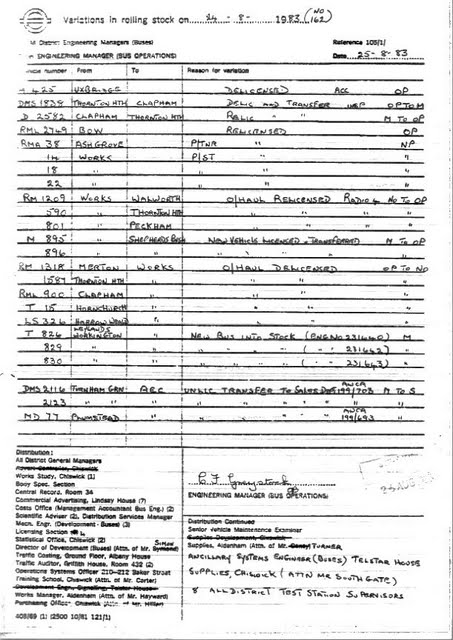 Variations in rolling stock on 24 - 8 - 1983 (NO 162)
All District Engineering Managers (Buses)
Reference 105/1/
ENGINEERING MANAGER (BUS OPERATIONS)
Date 25-8-83
Vehicle number From To Reason for variation
425 UXBRIDGE DELICENSED ACC OP
DMS 1839 THORNTON HTH CLAPHAM DELIC AND TRANSFER OP TO M
D 2582 CLAPHAM THORNTON HTH RELIC " " M TO OP
RML 2749 BOW RELICENSED OP
RMA 38 ASH GROVE P/TNR " NP
14 WORKS P/ST " "
18 " " "
22 " " "
RM 1209 WORKS WALWORTH O/HAUL RELICENSED RADIO NO TO OP
590 " THORNTON HTH " " " "
801 " PECKHAM " " "
M 895 " SHEPHERDS BUSH NEW VEHICLE LICENSED + TRANSFERRED M TO OP
896 " " " " " "
RM 1318 MERTON WORKS O/HAUL DELICENSED OP TO NO
1587 THORNTON HTH " " " "
RML 900 CLAPHAM " " " "
T 15 HORNCHURCH " " " "
LS 326 HARROW WEALD " " " "
T 826 LEYLANDS WORKINGTON " NEW BUS INTO STOCK (ENG NO 231640) M
829 " " " " " ( " " 231642) "
830 " " " " " ( " " 231643) "
DMS 2116 TURNHAM GRN AEC UNLIC TRANSFER TO SALES 199/703 M TO S
2123 " " " " " " " "
MD 77 PLUMSTEAD " " " " 199/693 " "
Distribution:
All District General Managers
Advert Controller, Chiswick
Works Study, Chiswick (1)
Body Spec. Section
Central Record, Room 34
Commercial Advertising, Lindsay House (7)
Costs Office (Management Accountant Bus Eng.) (2)
Scientific Adviser (2), Distribution Services Manager
Mech. Engr. (Development - Buses) (3)
Licensing Section
Statistical Office, Chiswick (2)
Director of Development (Buses) (Attn. of Mr. Symond) SIMON
Traffic Costing, Ground Floor, Albany House
Traffic Auditor, Griffith House, Room 432 (2)
Operations Systems Officer 210-212 Baker Street
Training School, Chiswick (Attn. of Mr. Carter)
Works Manager, Aldenham (Attn. of Mr. Hayward)
Purchasing Office, Chiswick (Attn. of Mr. Hillier)
409/69 (1) (2500 10/81 121/1)
ENGINEERING MANAGER (BUS OPERATIONS)
Distribution Continued
Senior Vehicle Maintenance Examiner
Supplies Development, Chiswick
Supplies, Aldenham (Attn. of Mr. TURNER
ANCILLARY SYSTEMS ENGINEER (BUSES) TELSTAR HOUSE
SUPPLIES, CHISWICK (ATTN MR SOUTHGATE)
8 ALL DISTRICT TEST STATION SUPERVISORS